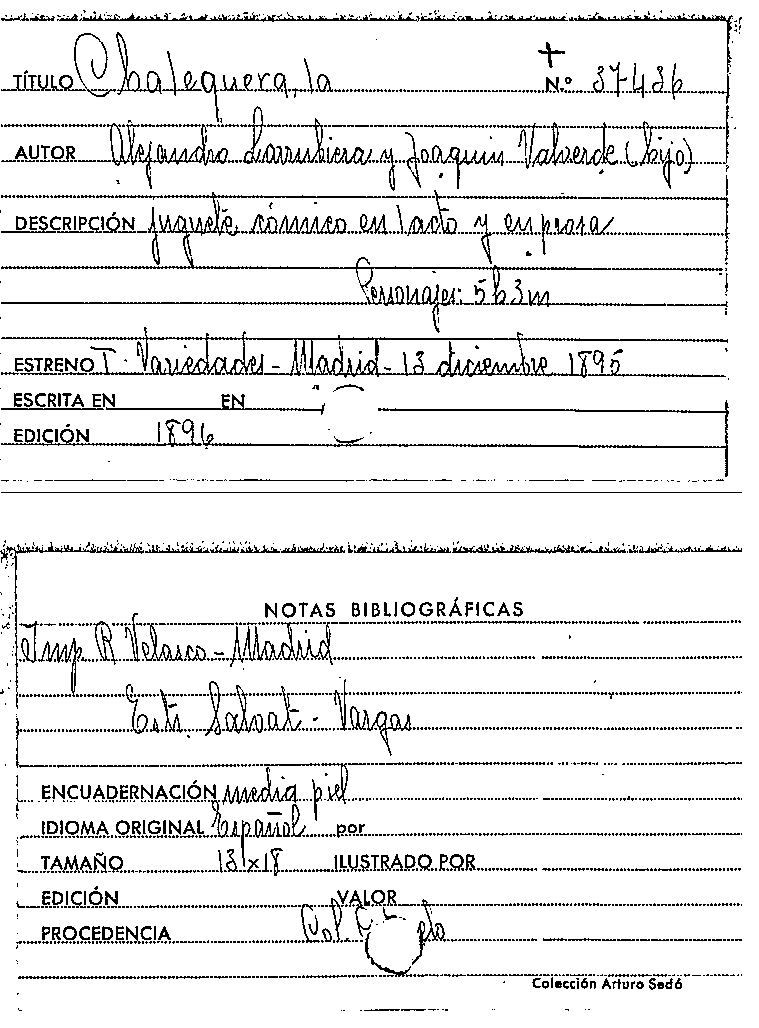 TÍTULO Chalequera, la N.º 37436
AUTOR Alejandro Larrubiera y Joaquin Valverde (hijo)
DESCRIPCIÓN juguete cómico en 1 acto y en prosa
Personajes: 5h3m
ESTRENO T. Variedades - Madrid - 13 diciembre 1895
ESCRITA EN EN
EDICIÓN 1896
NOTAS BIBLIOGRÁFICAS
Imp R Velasco - Madrid
Estr. Salvat - Vargas
ENCUADERNACIÓN media piel
IDIOMA ORIGINAL Español por
TAMAÑO 13x18 ILUSTRADO POR
EDICIÓN VALOR
PROCEDENCIA Col.
Colección Arturo Sedó